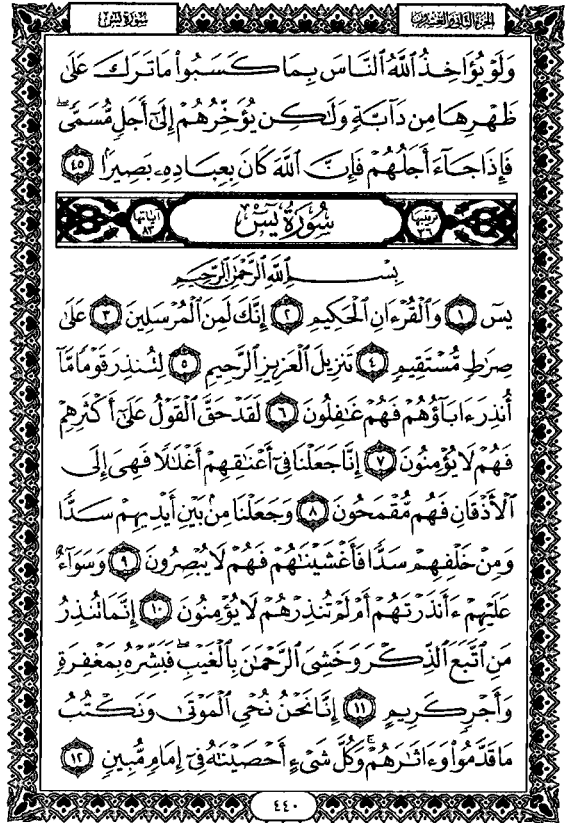 الجزء الثاني والعشرون
سورة يس
وَلَوْ يُؤَاخِذُ ٱللَّهُ ٱلنَّاسَ بِمَا كَسَبُوا۟ مَا تَرَكَ عَلَىٰ
ظَهْرِهَا مِن دَآبَّةٍ وَلَٰكِن يُؤَخِّرُهُمْ إِلَىٰٓ أَجَلٍ مُّسَمًّى ۖ
فَإِذَا جَآءَ أَجَلُهُمْ فَإِنَّ ٱللَّهَ كَانَ بِعِبَادِهِۦ بَصِيرًۢا ٤٥
ترتيبها ٣٦ سُورَةُ يسٓ آياتها ٨٣
بِسْمِ ٱللَّهِ ٱلرَّحْمَٰنِ ٱلرَّحِيمِ
يسٓ ١ وَٱلْقُرْءَانِ ٱلْحَكِيمِ ٢ إِنَّكَ لَمِنَ ٱلْمُرْسَلِينَ ٣ عَلَىٰ
صِرَٰطٍ مُّسْتَقِيمٍ ٤ تَنزِيلَ ٱلْعَزِيزِ ٱلرَّحِيمِ ٥ لِتُنذِرَ قَوْمًا مَّآ
أُنذِرَ ءَابَآؤُهُمْ فَهُمْ غَٰفِلُونَ ٦ لَقَدْ حَقَّ ٱلْقَوْلُ عَلَىٰٓ أَكْثَرِهِمْ
فَهُمْ لَا يُؤْمِنُونَ ٧ إِنَّا جَعَلْنَا فِىٓ أَعْنَٰقِهِمْ أَغْلَٰلًا فَهِىَ إِلَى
ٱلْأَذْقَانِ فَهُم مُّقْمَحُونَ ٨ وَجَعَلْنَا مِنۢ بَيْنِ أَيْدِيهِمْ سَدًّا
وَمِنْ خَلْفِهِمْ سَدًّا فَأَغْشَيْنَٰهُمْ فَهُمْ لَا يُبْصِرُونَ ٩ وَسَوَآءٌ
عَلَيْهِمْ ءَأَنذَرْتَهُمْ أَمْ لَمْ تُنذِرْهُمْ لَا يُؤْمِنُونَ ١٠ إِنَّمَا تُنذِرُ
مَنِ ٱتَّبَعَ ٱلذِّكْرَ وَخَشِىَ ٱلرَّحْمَٰنَ بِٱلْغَيْبِ ۖ فَبَشِّرْهُ بِمَغْفِرَةٍ
وَأَجْرٍ كَرِيمٍ ١١ إِنَّا نَحْنُ نُحْىِ ٱلْمَوْتَىٰ وَنَكْتُبُ
مَا قَدَّمُوا۟ وَءَاثَٰرَهُمْ ۚ وَكُلَّ شَىْءٍ أَحْصَيْنَٰهُ فِىٓ إِمَامٍ مُّبِينٍ ١٢
٤٤٠